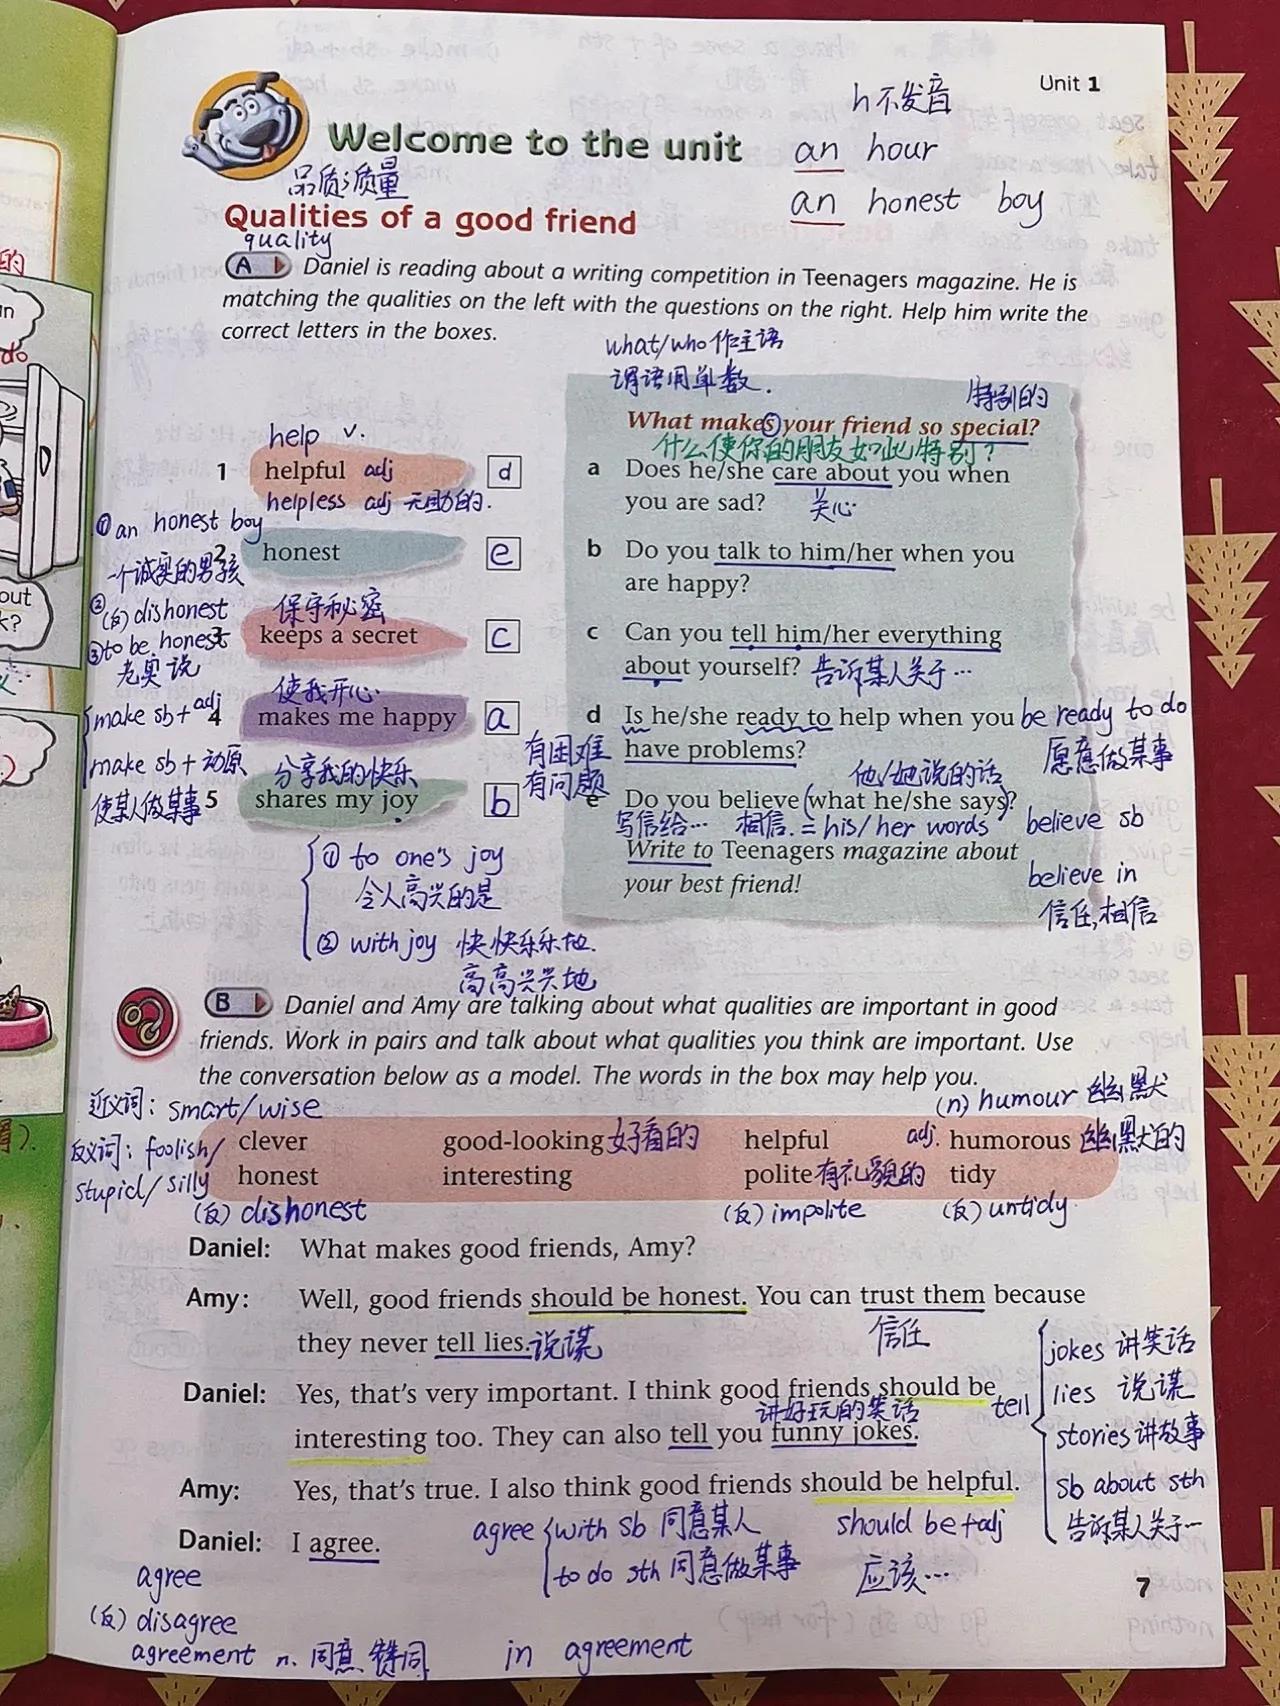 Unit 1
h不发音
Welcome to the unit
an hour
品质;质量
an honest boy
Qualities of a good friend
quality
A Daniel is reading about a writing competition in Teenagers magazine. He is
matching the qualities on the left with the questions on the right. Help him write the
correct letters in the boxes.
what/who作主语
谓语用单数.
特别的
What makes your friend so special?
什么使你的朋友如此特别?
help v.
1 helpful adj d
helpless adj 无助的.
① an honest boy
2 honest e
一个诚实的男孩
② (反) dishonest
保守秘密
3 keeps a secret c
③ to be honest
老实说
使我开心
make sb + adj
4 makes me happy a
make sb + 动原
使某人做某事
分享我的快乐
5 shares my joy b
① to one's joy
令人高兴的是
② with joy 快快乐乐地.
高高兴兴地
a Does he/she care about you when
you are sad? 关心
b Do you talk to him/her when you
are happy?
c Can you tell him/her everything
about yourself? 告诉某人关于…
d Is he/she ready to help when you be ready to do
have problems? 愿意做某事
有困难
有问题
他/她说的话
e Do you believe (what he/she says)?
写信给… 相信. = his/her words believe sb
Write to Teenagers magazine about
believe in
your best friend!
信任,相信
B Daniel and Amy are talking about what qualities are important in good
friends. Work in pairs and talk about what qualities you think are important. Use
the conversation below as a model. The words in the box may help you.
近义词: smart/wise
(n) humour 幽默
反义词: foolish/
stupid/silly
clever good-looking 好看的 helpful adj. humorous 幽默的
honest interesting polite 有礼貌的 tidy
(反) dishonest (反) impolite (反) untidy
Daniel: What makes good friends, Amy?
Amy: Well, good friends should be honest. You can trust them because
信任
they never tell lies. 说谎
Daniel: Yes, that's very important. I think good friends should be
讲好玩的笑话
interesting too. They can also tell you funny jokes.
tell
jokes 讲笑话
lies 说谎
stories 讲故事
sb about sth
告诉某人关于…
Amy: Yes, that's true. I also think good friends should be helpful.
should be + adj
应该…
Daniel: I agree.
agree with sb 同意某人
to do sth 同意做某事
7
agree
(反) disagree
agreement n. 同意 in agreement